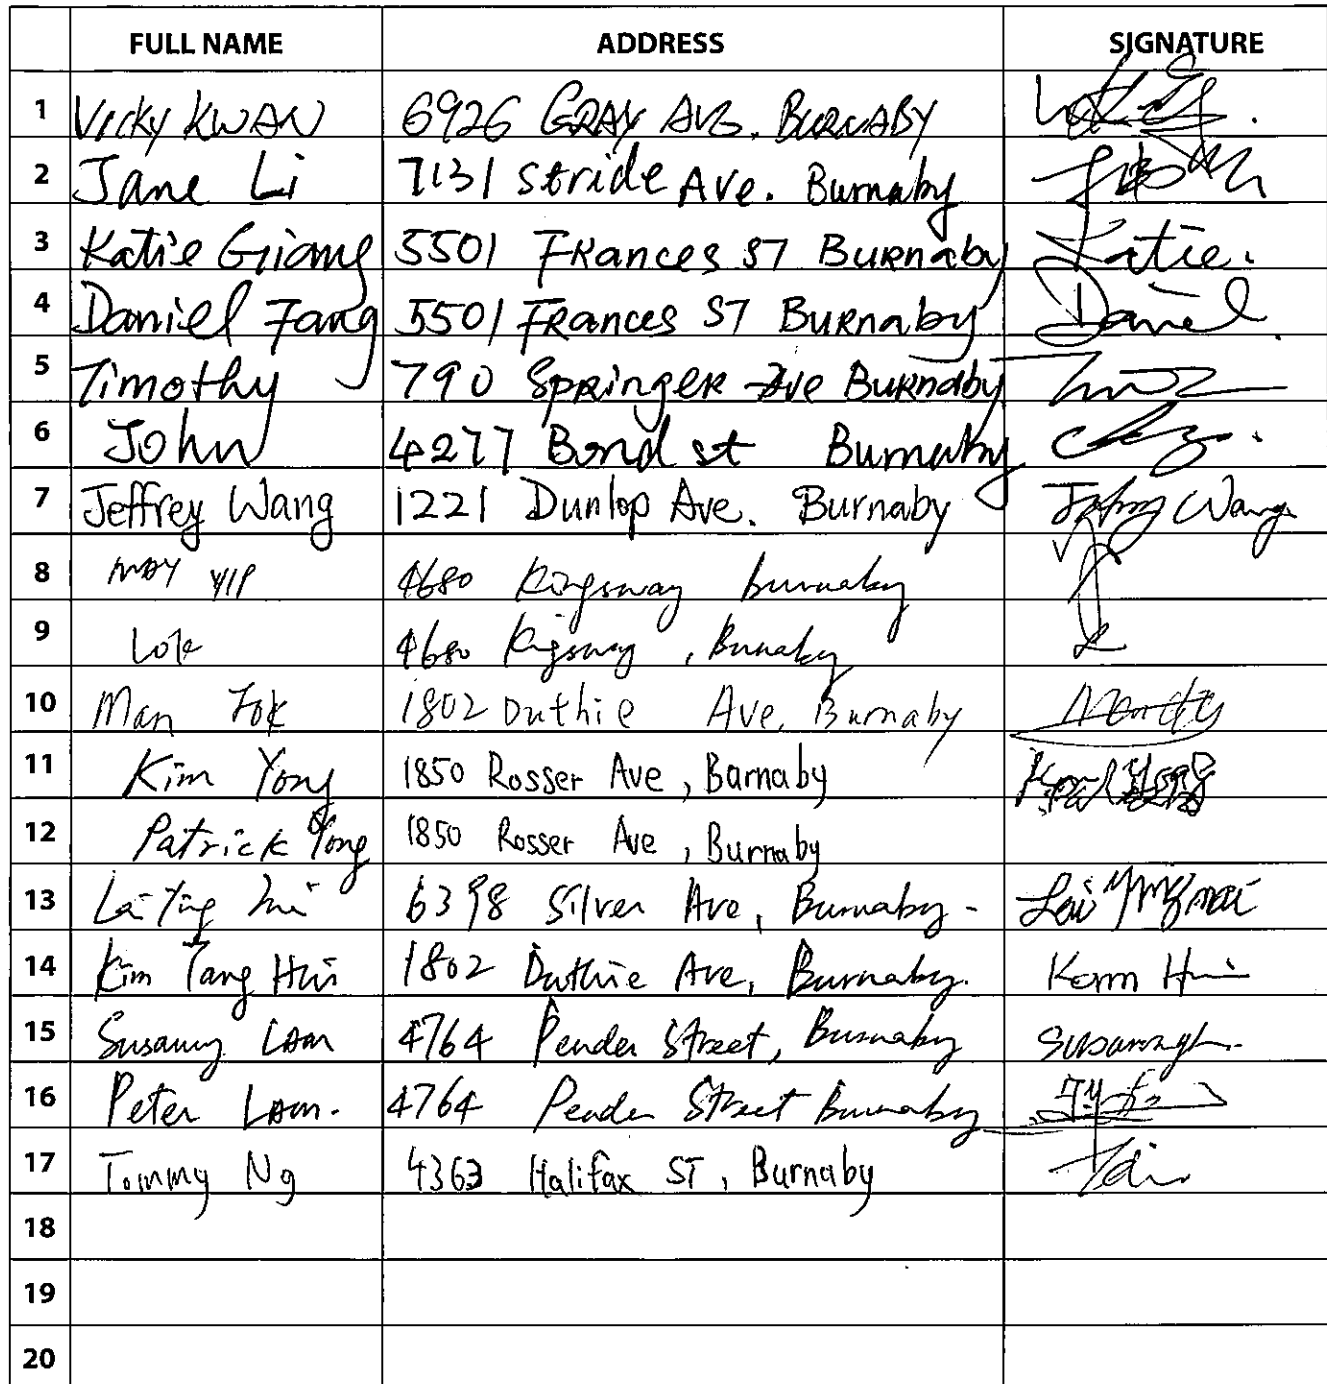 FULL NAME ADDRESS SIGNATURE
1 Vicky KWAN 6926 GRAY AVE. BURNABY
2 Jane Li 7131 Stride Ave. Burnaby
3 Katie Giang 5501 FRances ST BuRnaby Katie.
4 Daniel Fang 5501 FRances ST BuRnaby Daniel
5 Timothy 790 SpRingeR Ave BuRnaby
6 John 4277 Bond st Burnaby
7 Jeffrey Wang 1221 Dunlop Ave. Burnaby Jeffrey Wang
8 MAY YIP 4680 Kingsway Burnaby
9 4680 Kigsway, Burnaby
10 Man Fok 1802 Duthie Ave, Burnaby
11 Kim Yong 1850 Rosser Ave, Barnaby
12 Patrick Yong 1850 Rosser Ave, Burnaby
13 6398 Silver Ave, Burnaby.
14 Kim Tang Hui 1802 Duthie Ave, Burnaby.
15 Susanny Lam 4764 Pender Street, Burnaby
16 Peter Lam. 4764 Pender Street Burnaby
17 Tommy Ng 4363 Halifax ST, Burnaby
18
19
20